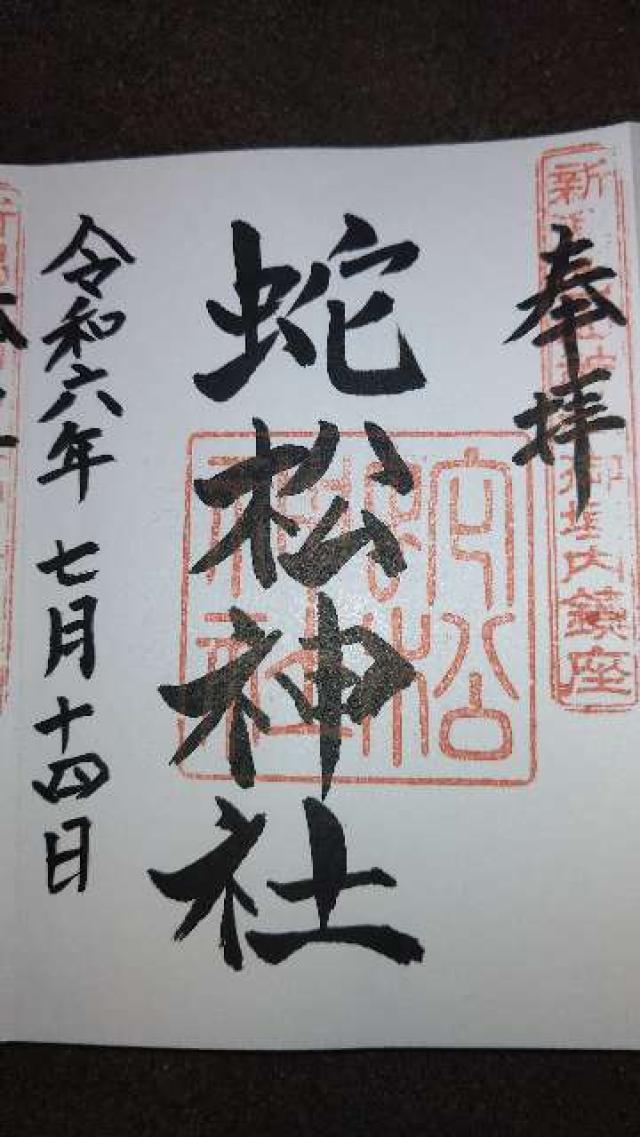 奉拝
御垣内鎮座
蛇松神社
蛇松神社
令和六年 七月十四日